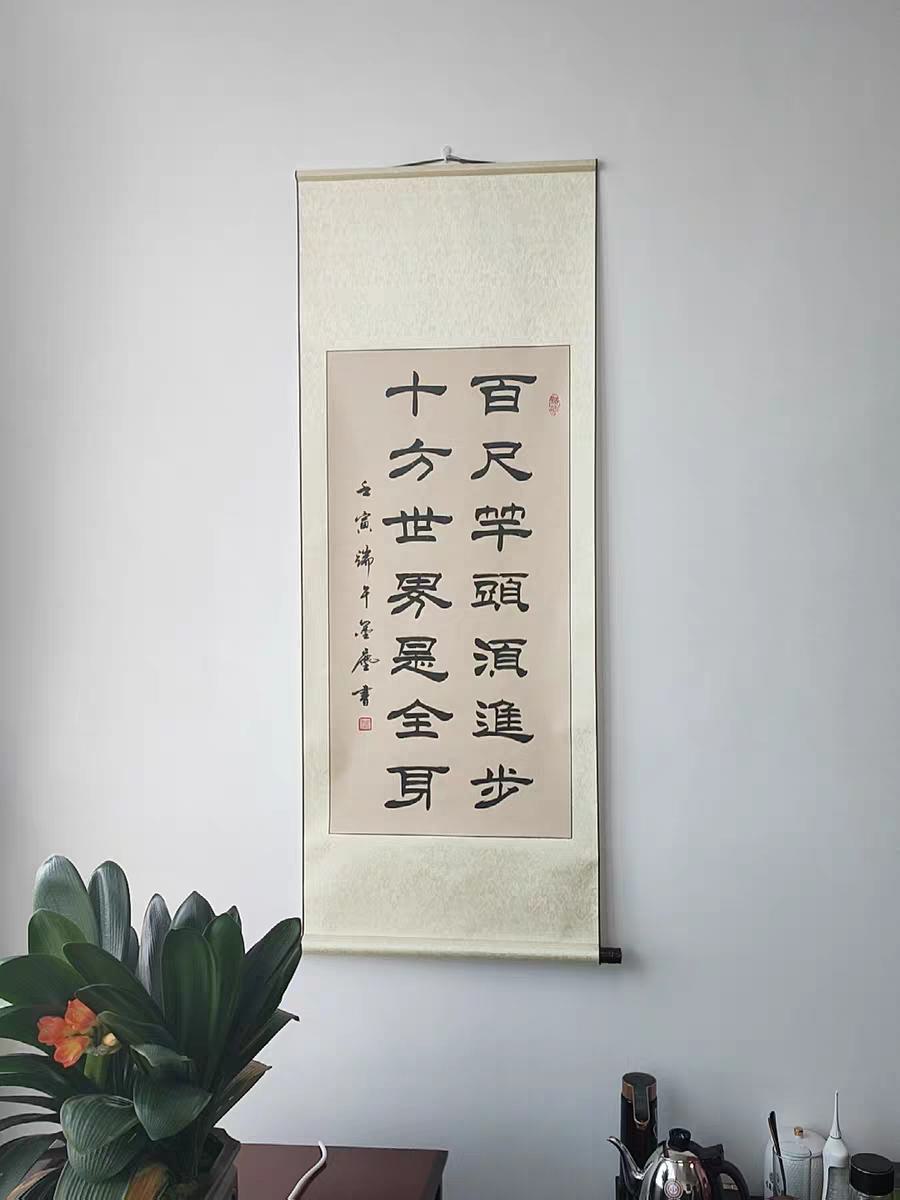 百尺竿頭須進步
十方世界是全身
壬寅端午墨塵書